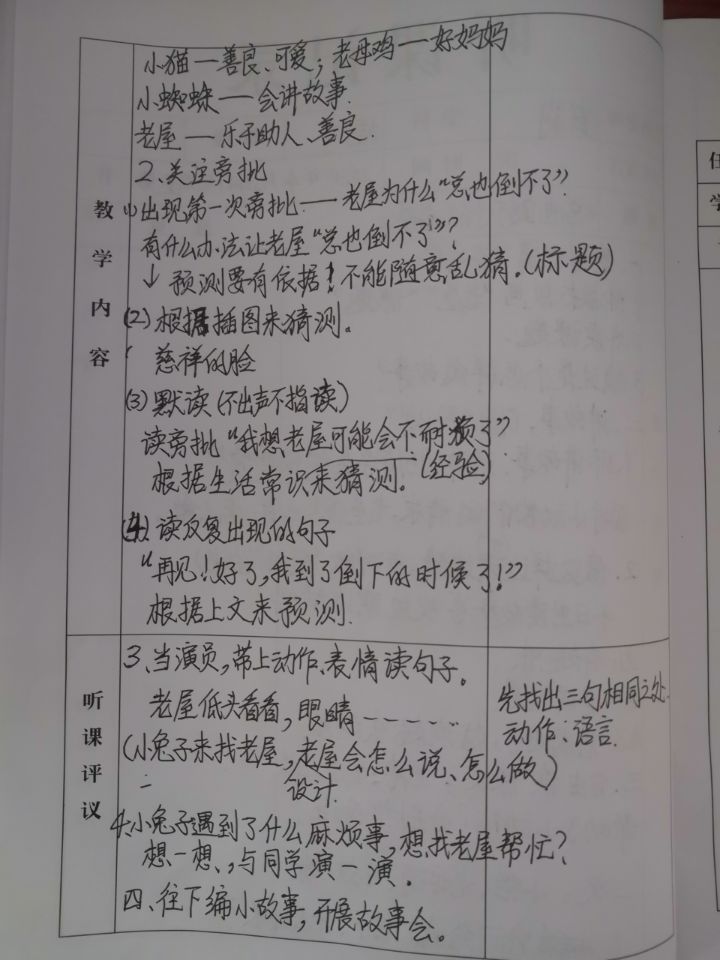 小猫—善良、可爱；老母鸡—好妈妈
小蜘蛛——会讲故事.
老屋——乐于助人、善良.
2、关注旁批
教学内容
(1)出现第一次旁批——老屋为什么“总也倒不了”?
有什么办法让老屋“总也倒不了”?
↓ 预测要有依据! 不能随意乱猜.(标题)
(2)根据插图来猜测。
慈祥的脸
(3)默读(不出声不指读)
读旁批“我想老屋可能会不耐烦了”
根据生活常识来猜测。(经验)
(4)读反复出现的句子
“再见!好了,我到了倒下的时候了!”
根据上文来预测.
听课评议
3、当演员,带上动作、表情读句子。
老屋低头看看,眼睛------
(小兔子来找老屋,老屋会怎么说、怎么做)
二
设计.
4、小兔子遇到了什么麻烦事,想找老屋帮忙?
想一想、,与同学演一演.
四、往下编小故事,开展故事会。
先找出三句相同之处.
动作、语言.